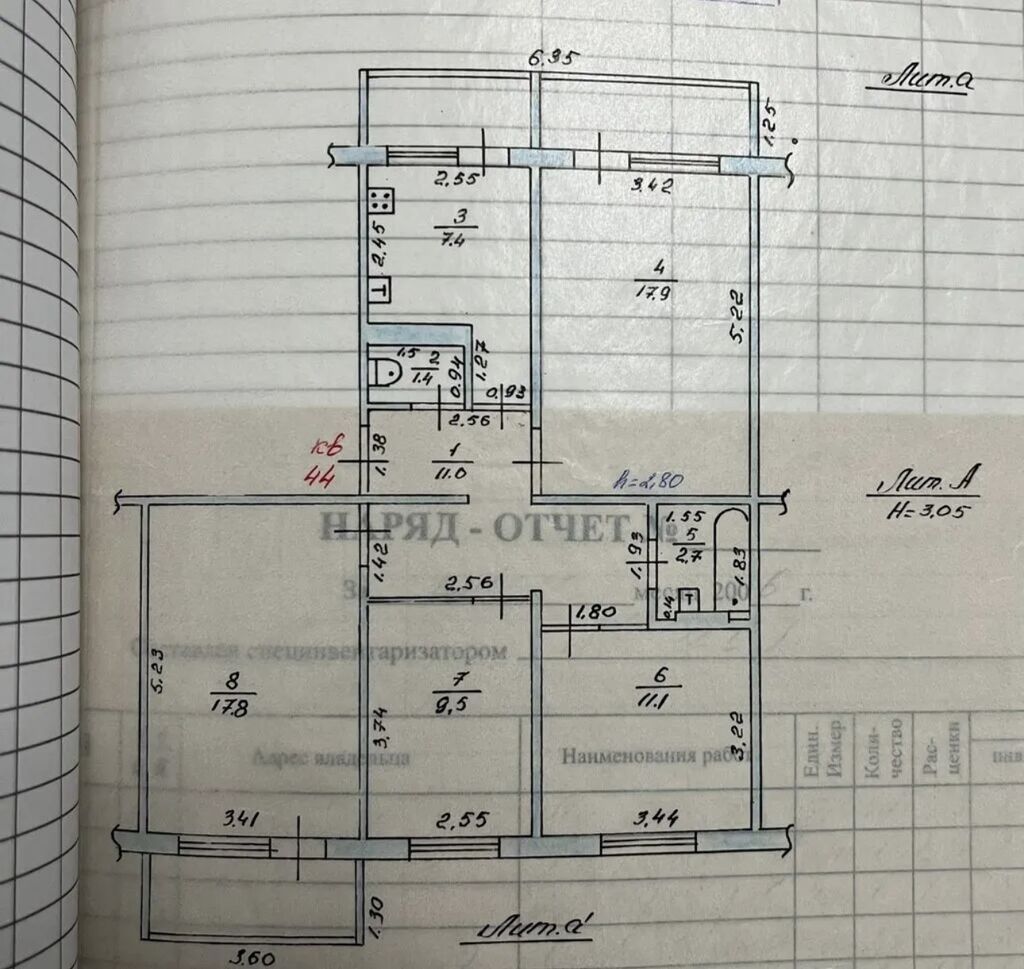 6.35
Лит.а
1.25
2.55
3.42
2.45
3
7.4
4
17.9
5.22
1.5
2
1.4
0.94
1.27
0.93
2.56
кв
44
1.38
1
11.0
h=2.80
Лит. А
H=3.05
НАРЯД - ОТЧЕТ №
1.55
5
2.7
1.93
1.83
1.42
2.56
0.14
1.80
За
месяц 200
г.
Составлен специнвентаризатором
5.23
8
17.8
7
9,5
6
11.1
3.74
3.22
Адрес владельца
Наименования работ
Един.
Измер
Коли-
чество
Рас-
ценки
3.41
2,55
3.44
1.30
Лит.а'
3.60